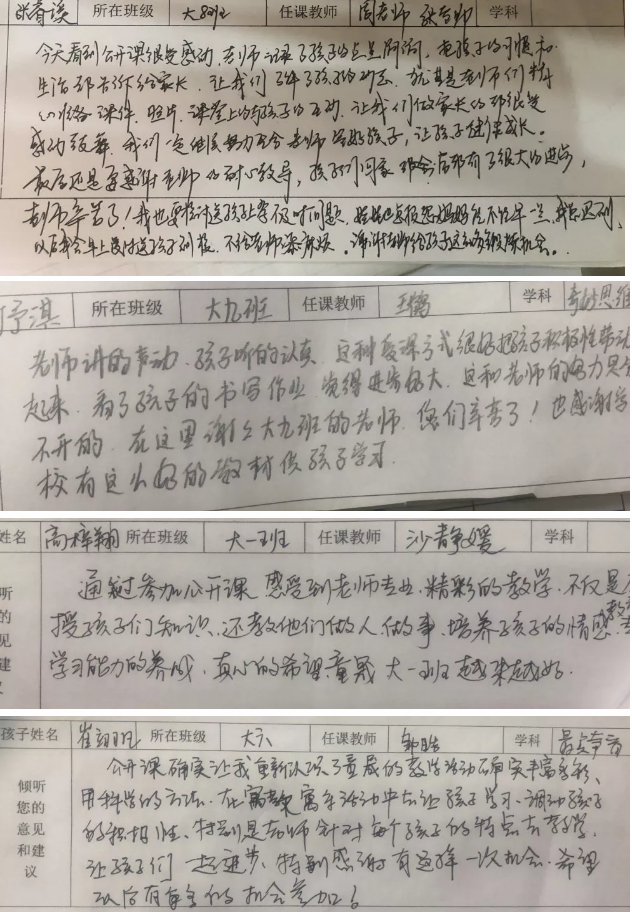 所在班级 大8班 任课教师 学科
今天看到公开课很受感动,老师记录了孩子的点点滴滴,把孩子的习惯和
生活都告诉给家长,让我们了解了孩子的动态,尤其是老师们精
心准备课件、照片、课堂上的与孩子的互动,让我们做家长的都很受
感动鼓舞,我们一定继续努力配合老师 孩子,让孩子健康成长。
最后还是要感谢老师的耐心教导,孩子们 都有了很大的进步,
老师辛苦了!我也要检讨送孩子上学 时间问题,
以后我会早上按时送孩子到校,不给老师添麻烦。谢谢老师给孩子这 机会。
淇 所在班级 大九班 任课教师 学科 奇妙思维
老师讲的生动,孩子听的认真,这种授课方式很好把孩子积极性带动
起来,看了孩子的书写作业,觉得进步好大,这和老师的努力是分
不开的,在这里谢谢大九班的老师,您们辛苦了!也感谢学
校有这么好的教材供孩子学习.
姓名 高梓翔 所在班级 大一班 任课教师 沙静媛 学科
听
的
见
建
通过参加公开课 感受到老师专业.精彩的教学.不仅是
授孩子们知识、还教他们做人.做事.培养孩子的情感.
学习能力的养成、真心的希望童晟 大一班越来越好.
孩子姓名 崔翊 所在班级 大六 任课教师 邹皓 学科
倾听
您的
意见
和建
议
公开课确实让我重新认识了童晟的教学活动确实丰富多彩、
用科学的方法.在 活动中去让孩子学习.调动孩子
的积极性、特别是老师针对每个孩子的特点去教学,
让孩子们一起进步、特别感谢有这样一次机会.希望
以后有更多的机会参加!